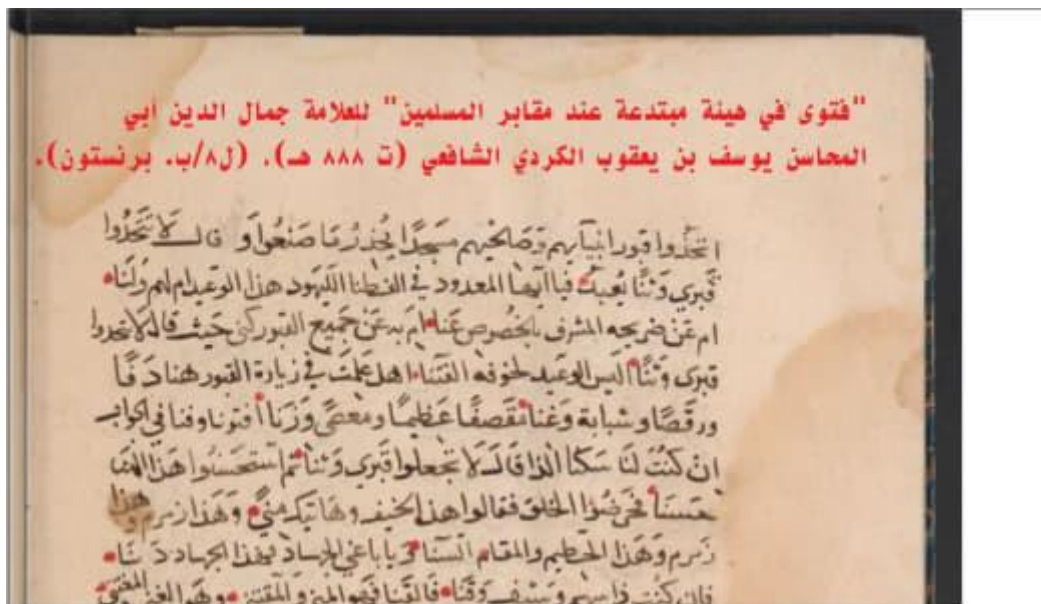 "فتوى في هيئة مبتدعة عند مقابر المسلمين" للعلامة جمال الدين أبي
المحاسن يوسف بن يعقوب الكردي الشافعي (ت ٨٨٨ هـ). (ل٨/ب. برنستون).
اتخذوا قبور انبيايهم وصالحيهم مسجدا يحذر ما صنعوا و قال لا تتخذوا
قبري وثنا يعبد فيا ايها المعدود في هذا الوعيد ام لهم ولنا
ام عن ضريحه المشرف بالخصوص عنا ام به عن جميع القبور كنى حيث قال لا تتخذوا
قبري وثنا اليس الوعيد لخوفه الفتنا اهل علمت في زيارة القبور هنا دفا
ورقصا وشبابة وغنا تقصفا عظيما ومعصى وزنا افتونا وفنا في الجواب
ان كنت لنا سكنا الذا قال لا تجعلوا قبري وثنا ثم استحسنوا هذا
حسنا فحرضوا الخلق فقالوا هذا الخيف وهاتيك منى وهذا زمزم وهذا
زمزم وهذا الحطيم والمقام السنا يا باغي الجهاد بهذا الجهاد دنا
فان كنت ذا سهم وسيف وقنا فالقنا فهو وهو